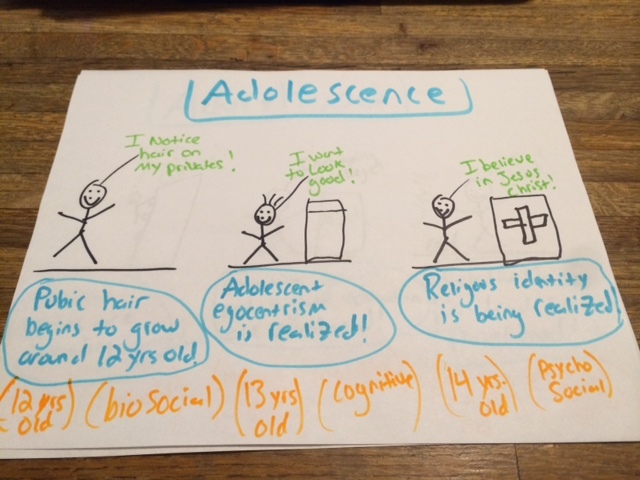 Adolescence
I Notice
hair on
my privates!
I want
to Look
good!
I believe
in Jesus
Christ!
Pubic hair
begins to grow
around 12 yrs old!
Adolescent
egocentrism
is realized!
Religous identity
is being realized!
(12 yrs old)
(bio social)
(13 yrs old)
(cognitive)
(14 yrs. old)
(Psycho
Social)